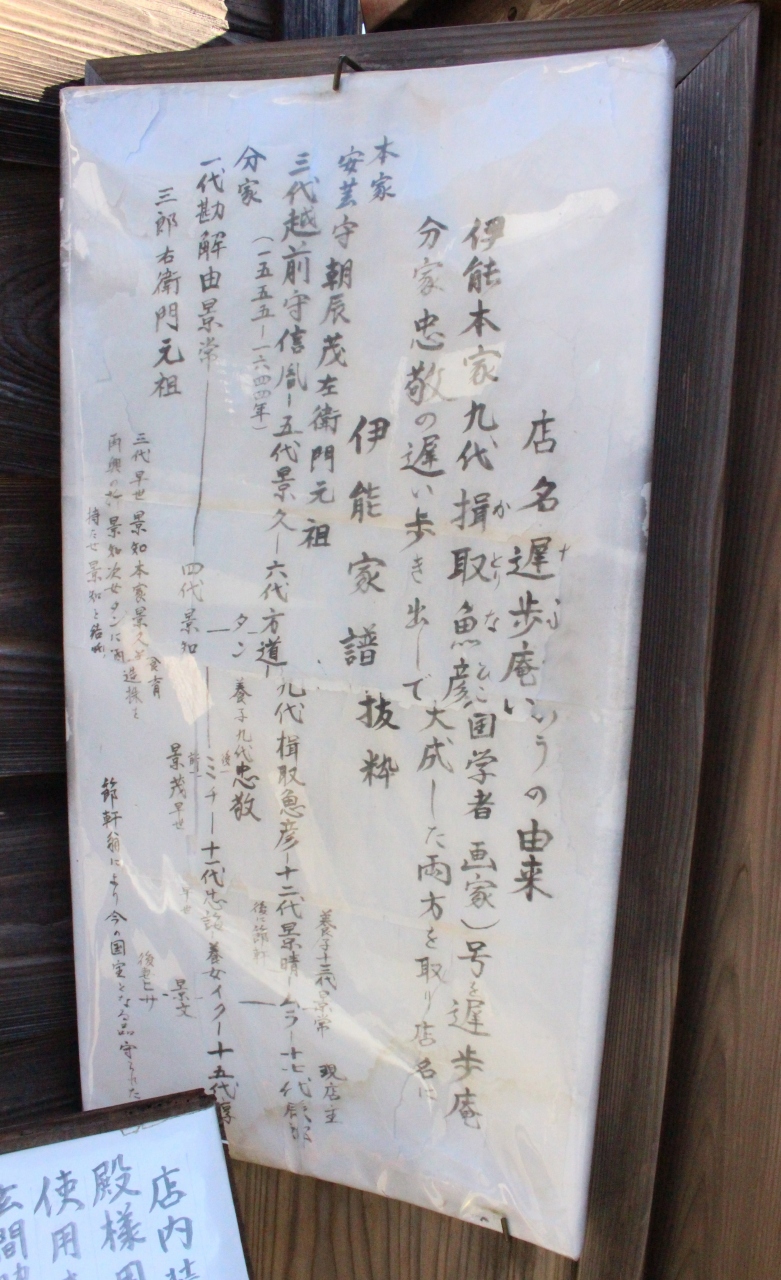 店名遅歩庵いうの由来
伊能本家九代 揖取魚彦(国学者 画家)号を遅歩庵
かとりなひこ
分家忠敬の遅い歩き出しで大成した両方を取り店名に
伊能家譜抜粋
本家
安芸守朝辰茂左衛門元祖
三代越前守信胤―五代景久―六代方道―九代揖取魚彦―十二代景晴―ムラ―十七代
(一五五五―一六四四年)
養子十三代景常
現店主
分家
タン
養子九代忠敬
後に節軒
一代勘解由景常
四代景知
ミチ―十一代忠誨―養女イク―十五代
三郎右衛門元祖
景茂早世
景文
後妻
三代早世景知本家景久が養育
両興の許景知次女タンに
持たせ景知と結婚
節軒翁により今の国宝となる品守られた
店内
殿様
使用
玄関